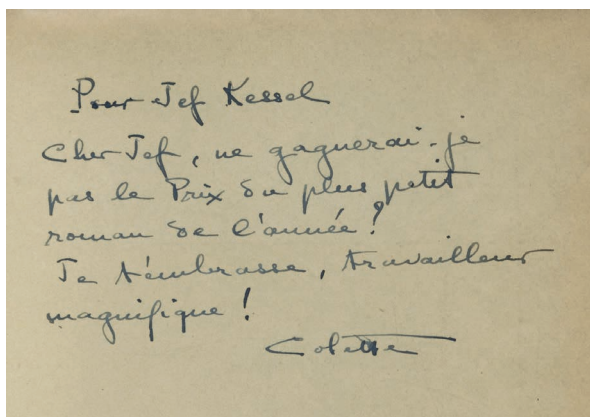 Pour Jef Kessel
Cher Jef, ne gagnerai-je
pas le Prix du plus petit
roman de l'année?
Je t'embrasse, travailleur
magnifique !
Colette